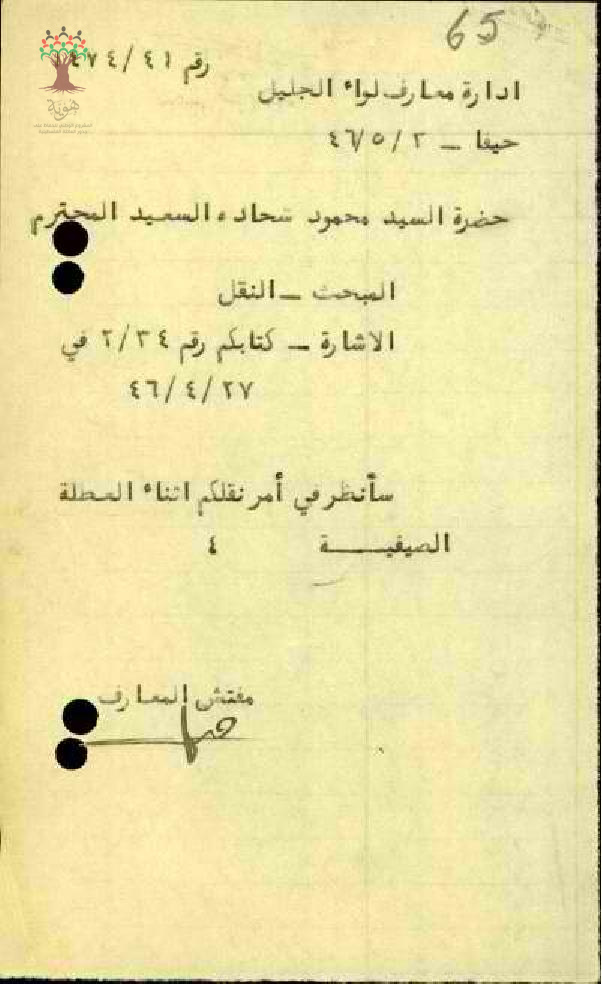 65
رقم ٤٧٤/٤١
ادارة معارف لواء الجليل
حيفا _ ٤٦/٥/٢
حضرة السيد محمود شحاده السعيد المحترم
المبحث _ النقل
الاشارة _ كتابكم رقم ٢/٣٤ في
٤٦/٤/٢٧
سأنظر في أمر نقلكم اثناء العطلة
الصيفيــــة ٤
مفتش المعارف
هوية